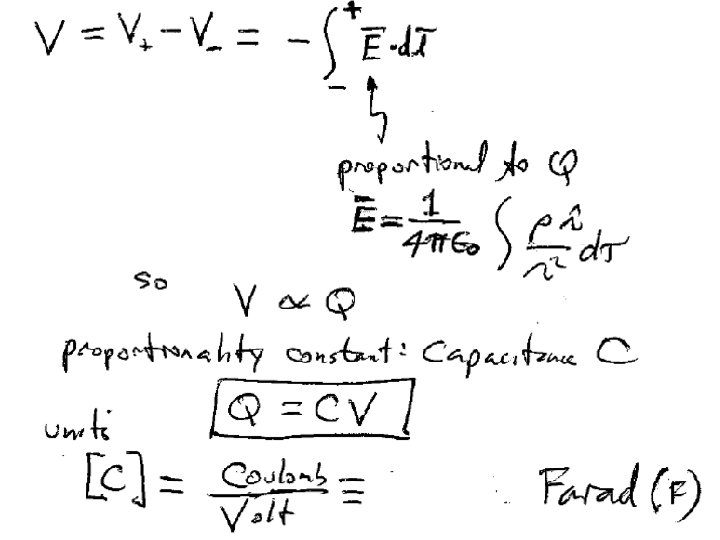 V = V₊ - V₋ = -∫₋⁺ E̅·dl̅
proportional to Q
E̅ = 1/(4πϵ₀) ∫ ρ r̂/r² dτ
so
V ∝ Q
proportionality constant: Capacitance C
Q = CV
units
[C] = Coulomb/Volt ≡ Farad (F)